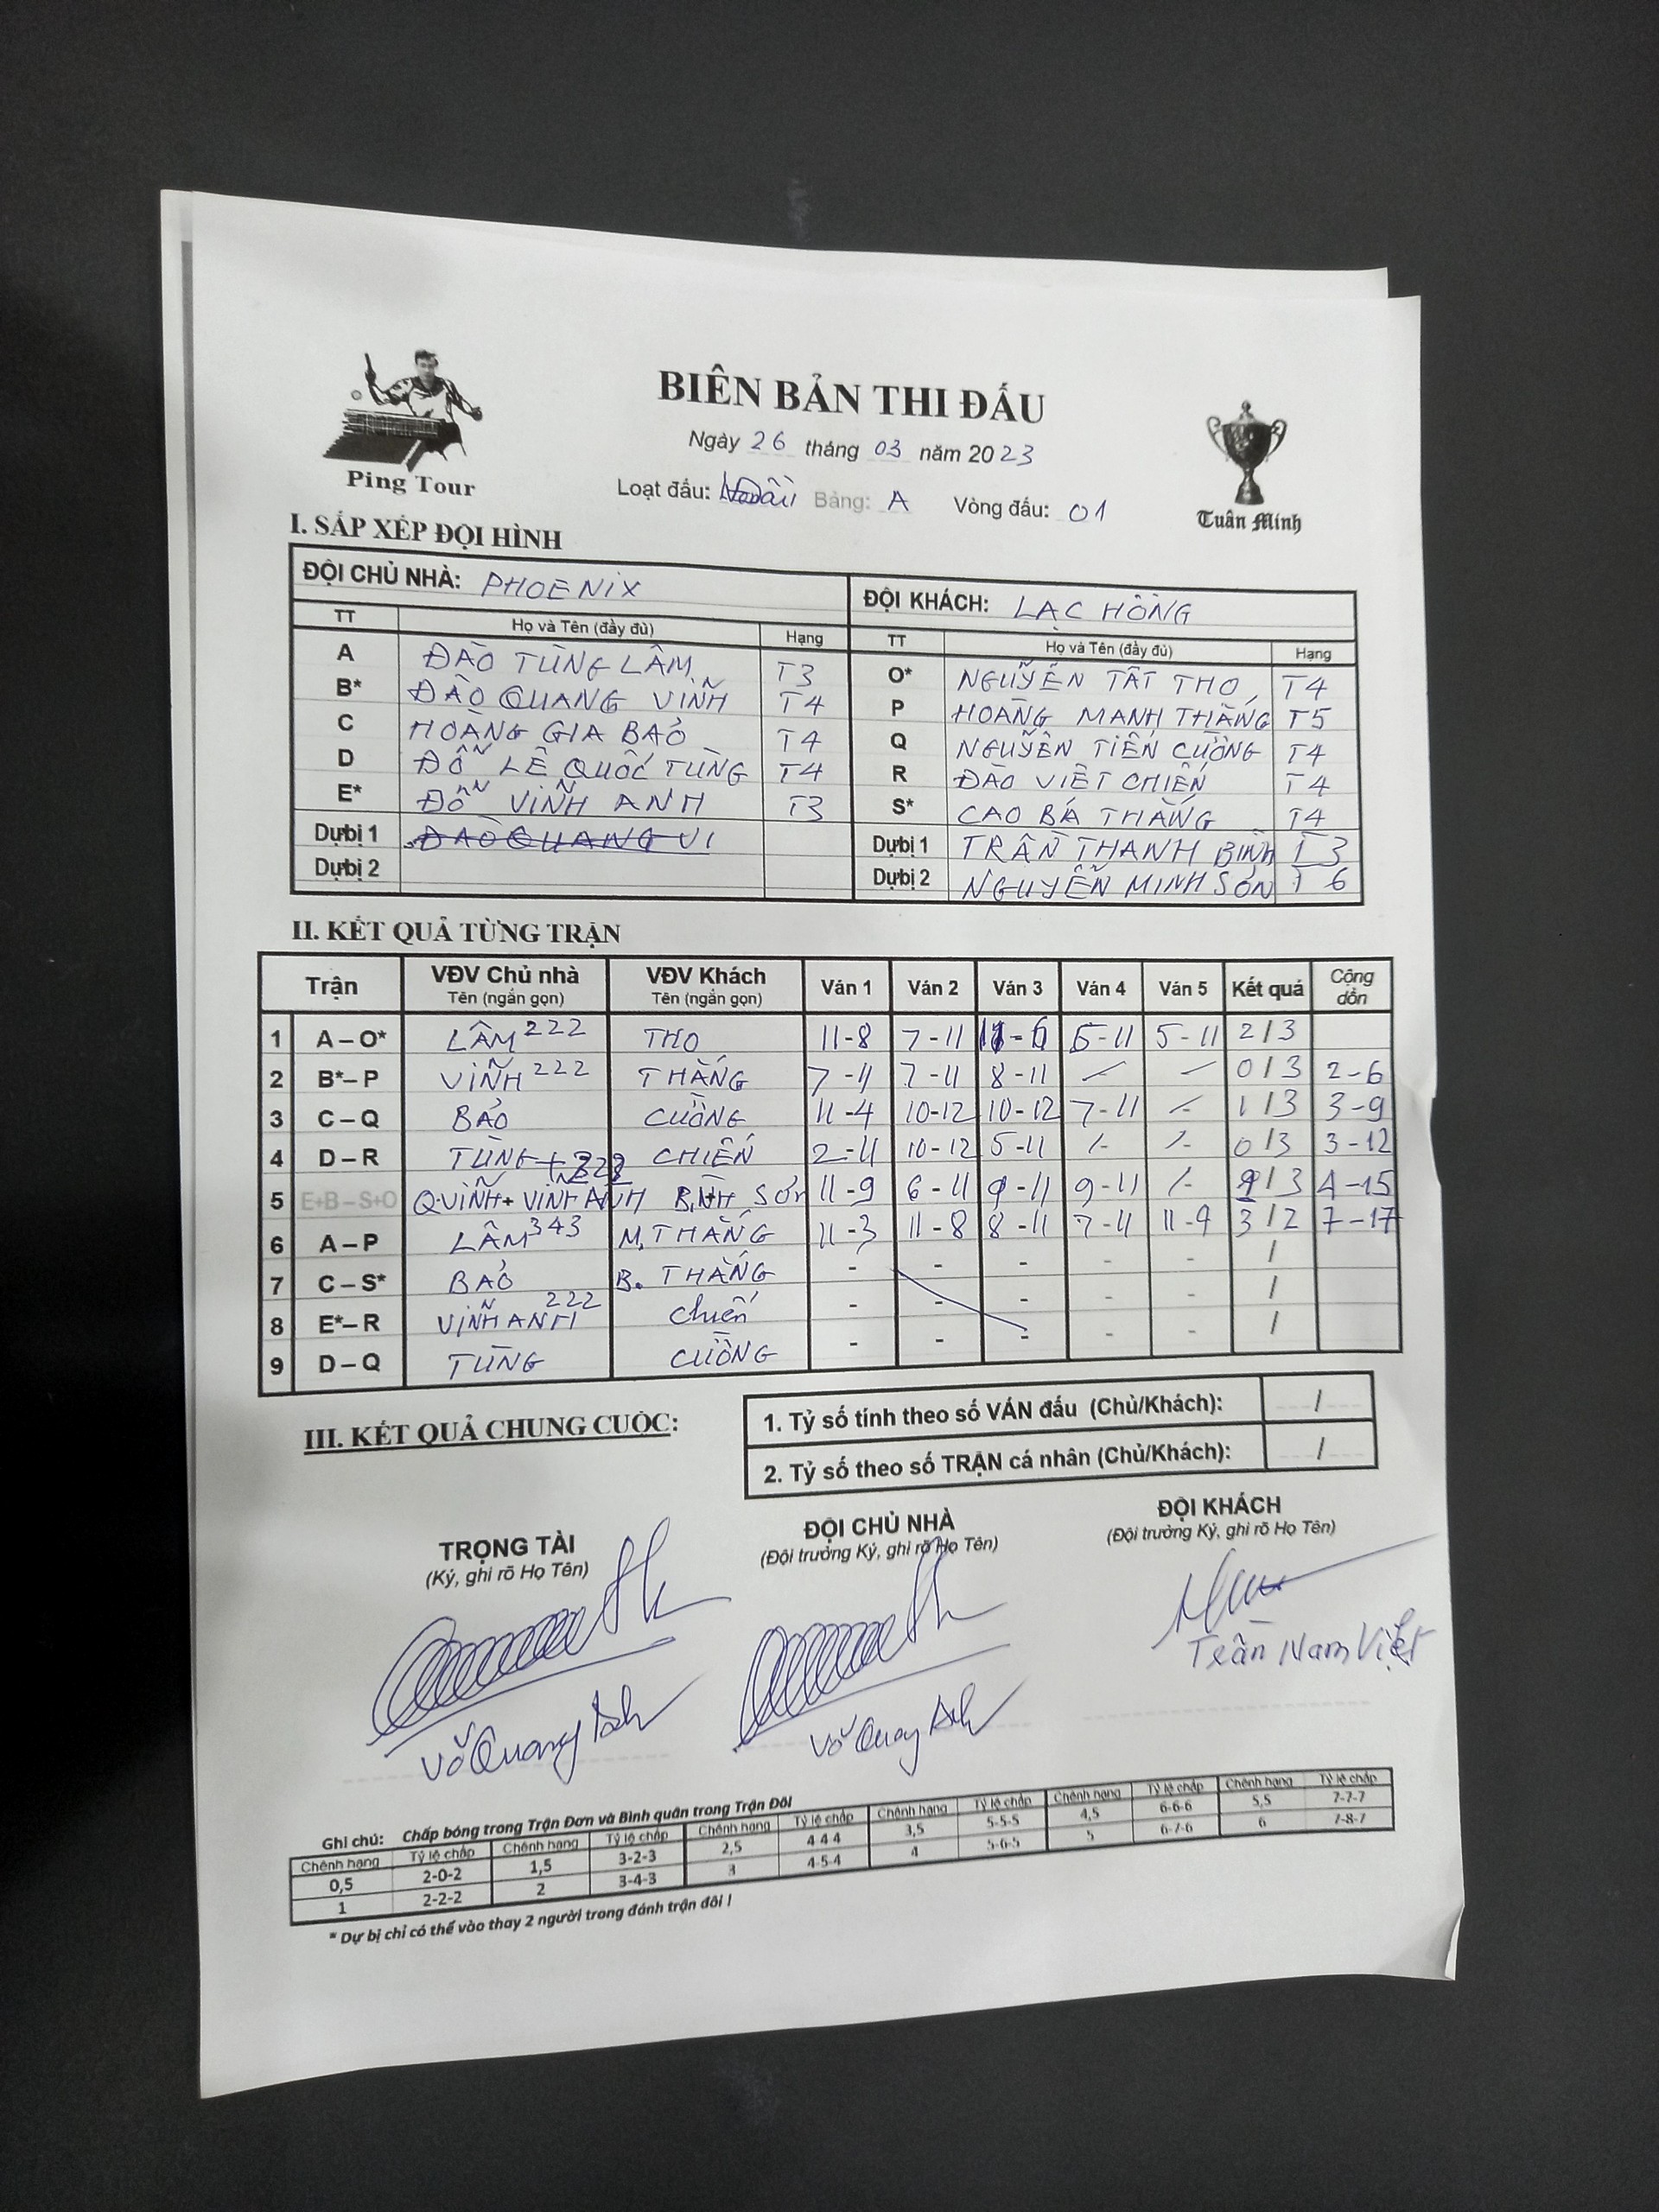 Ping Tour
BIÊN BẢN THI ĐẤU
Ngày 26 tháng 03 năm 2023
Loạt đấu: Bảng: A Vòng đấu: 01
Tuân Minh
I. SẮP XẾP ĐỘI HÌNH
ĐỘI CHỦ NHÀ: PHOENIX ĐỘI KHÁCH: LẠC HỒNG
TT Họ và Tên (đầy đủ) Hạng TT Họ và Tên (đầy đủ) Hạng
A ĐÀO TÙNG LÂM T3 O* NGUYỄN TẤT THO T4
B* ĐÀO QUANG VINH T4 P HOÀNG MANH THẮNG T5
C HOÀNG GIA BẢO T4 Q NGUYỄN TIẾN CƯỜNG T4
D ĐỖ LÊ QUỐC TÙNG T4 R ĐÀO VIẾT CHIẾN T4
E* ĐỖ VINH ANH T3 S* CAO BÁ THẮNG T4
Dự bị 1 ĐÀO QUANG VI Dự bị 1 TRẦN THANH BÌNH T3
Dự bị 2 Dự bị 2 NGUYỄN MINH SƠN T6
II. KẾT QUẢ TỪNG TRẬN
Trận VĐV Chủ nhà Tên (ngắn gọn) VĐV Khách Tên (ngắn gọn) Ván 1 Ván 2 Ván 3 Ván 4 Ván 5 Kết quả Cộng dồn
1 A – O* LÂM 222 THO 11-8 7-11 11-6 5-11 5-11 2/3
2 B*– P VINH 222 THẮNG 7-11 7-11 8-11 0/3 2-6
3 C – Q BẢO CƯỜNG 11-4 10-12 10-12 7-11 1/3 3-9
4 D – R TÙNG CHIẾN 2-11 10-12 5-11 0/3 3-12
5 E+B – S+O Q.VINH + VINH ANH BÌNH SƠN 11-9 6-11 9-11 9-11 1/3 4-15
6 A – P LÂM 343 M. THẮNG 11-3 11-8 8-11 7-11 11-9 3/2 7-17
7 C – S* BẢO B. THẮNG - - - - - /
8 E*– R VINH ANH 222 Chiến - - - - - /
9 D – Q TÙNG CƯỜNG - - - - - /
III. KẾT QUẢ CHUNG CUỘC:
1. Tỷ số tính theo số VÁN đấu (Chủ/Khách): /
2. Tỷ số theo số TRẬN cá nhân (Chủ/Khách): /
TRỌNG TÀI ĐỘI CHỦ NHÀ ĐỘI KHÁCH
(Ký, ghi rõ Họ Tên) (Đội trưởng Ký, ghi rõ Họ Tên) (Đội trưởng Ký, ghi rõ Họ Tên)
Võ Quang Anh Võ Quang Anh Trần Nam Việt
Ghi chú: Chấp bóng trong Trận Đơn và Bình quân trong Trận Đôi
Chênh hạng Tỷ lệ chấp Chênh hạng Tỷ lệ chấp Chênh hạng Tỷ lệ chấp Chênh hạng Tỷ lệ chấp Chênh hạng Tỷ lệ chấp Chênh hạng Tỷ lệ chấp
0,5 2-0-2 1,5 3-2-3 2,5 4-4-4 3,5 5-5-5 4,5 6-6-6 5,5 7-7-7
1 2-2-2 2 3-4-3 3 4-5-4 4 5-6-5 5 6-7-6 6 7-8-7
* Dự bị chỉ có thể vào thay 2 người trong đánh trận đôi !